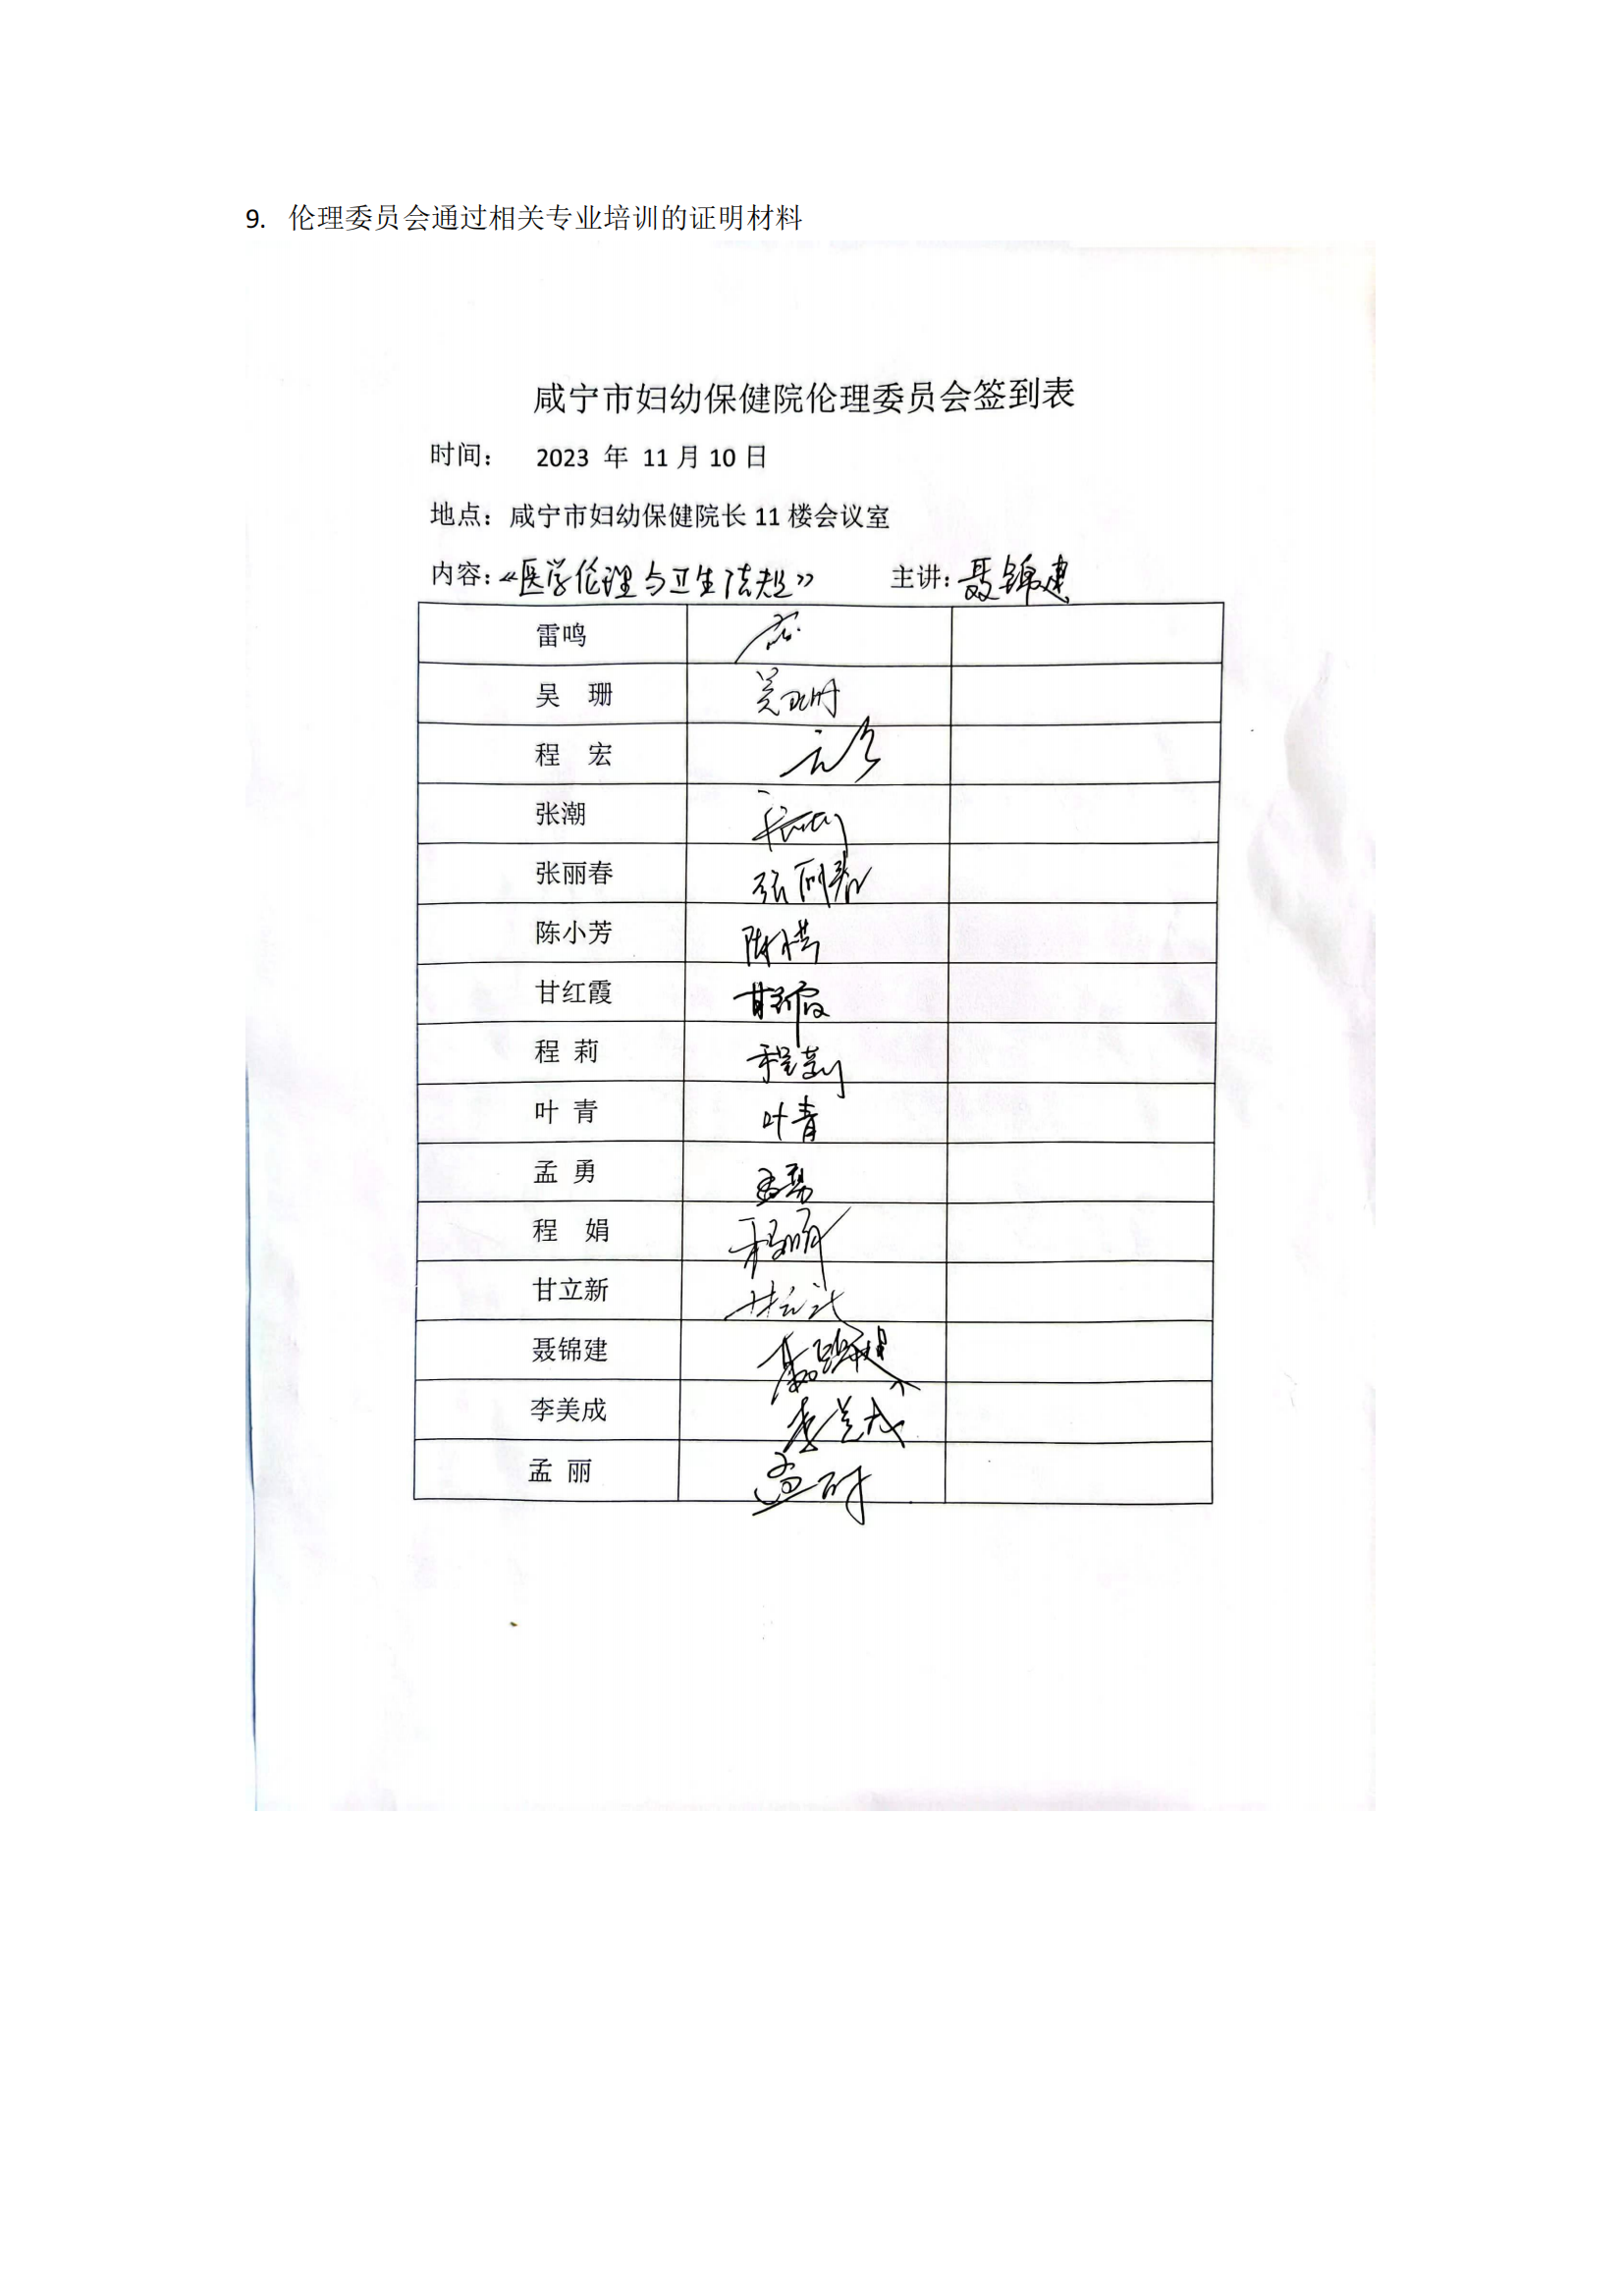 9. 伦理委员会通过相关专业培训的证明材料
咸宁市妇幼保健院伦理委员会签到表
时间： 2023 年 11 月 10 日
地点：咸宁市妇幼保健院长 11 楼会议室
内容：《医学伦理与卫生法规》 主讲：聂锦建
雷鸣
吴 珊 吴珊
程 宏
张潮
张丽春 张丽春
陈小芳 陈小芳
甘红霞 甘红霞
程 莉 程莉
叶 青 叶青
孟 勇 孟勇
程 娟 程娟
甘立新 甘立新
聂锦建 聂锦建
李美成 李美成
孟 丽 孟丽